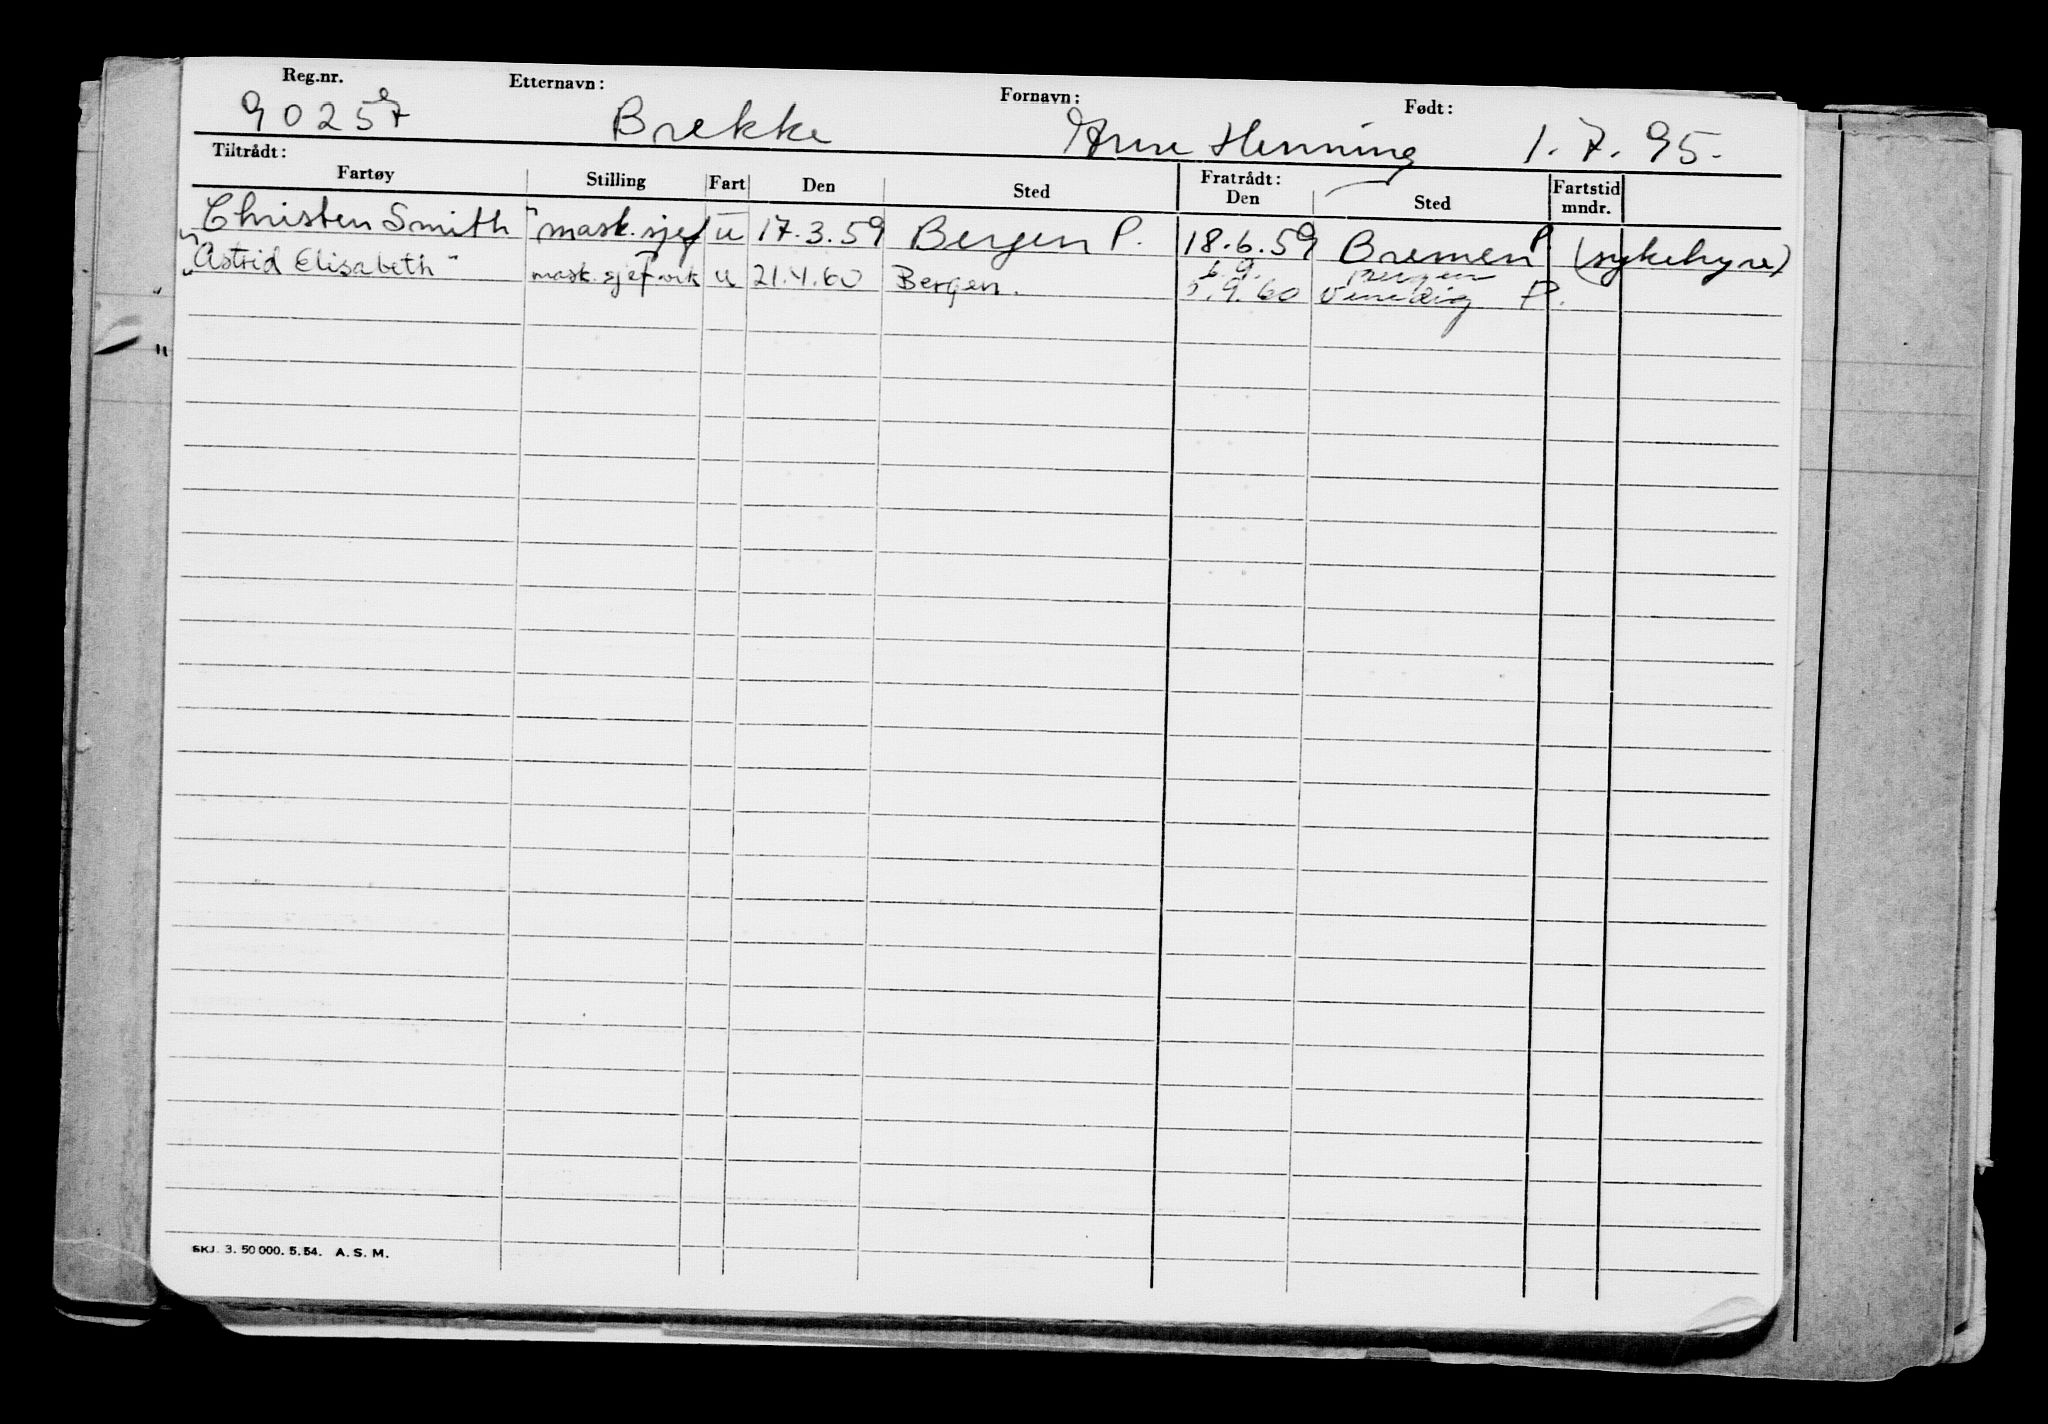 Reg.nr. Etternavn: Fornavn: Født:
90257 Brekke Arne Henning 1.7.95.
Tiltrådt: Fratrådt:
Fartøy Stilling Fart Den Sted Den Sted Fartstid mndr.
"Christen Smith" mask.sjef u 17.3.59 Bergen P. 18.6.59 Bremen P (sykehyre)
"Astrid Elisabeth" mask.sjef vik u 21.4.60 Bergen. 5.9.60 Venedig P.
6.9. Bergen
SKJ. 3. 50 000. 5. 54. A. S. M.